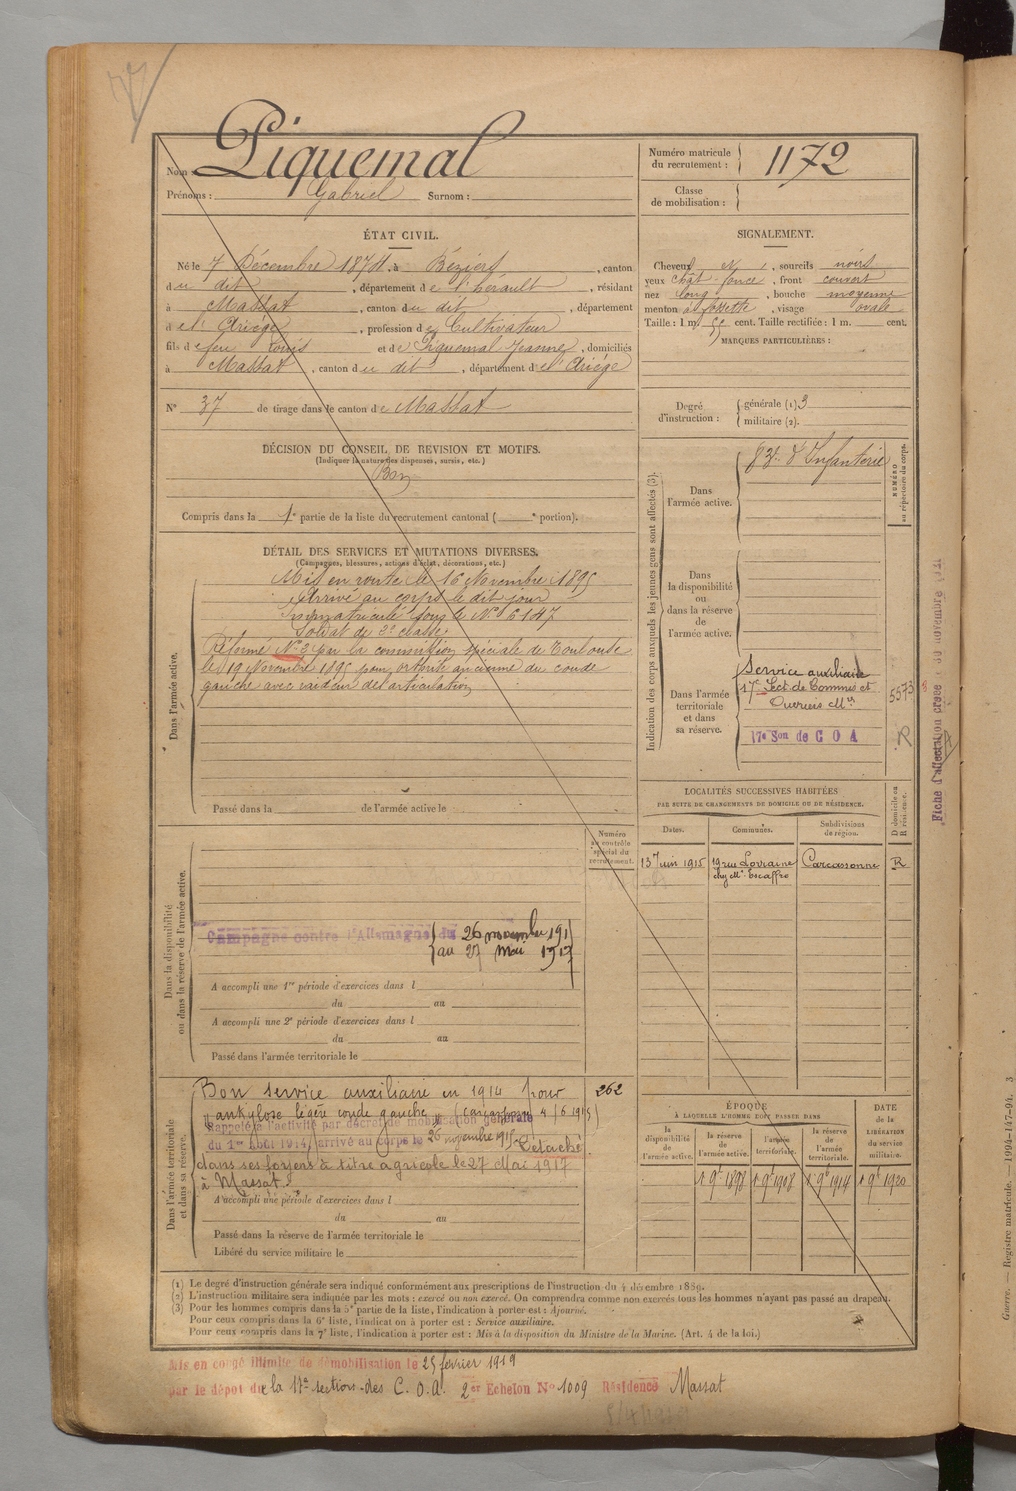 Nom : Piquemal
Prénoms : Gabriel Surnom :
Numéro matricule du recrutement : 1172
Classe de mobilisation :
ÉTAT CIVIL.
Né le 7 Décembre 1874, à Béziers, canton
du dit, département de l'hérault, résidant
à Massat, canton du dit, département
de l'Ariège, profession de Cultivateur
fils de feu Louis et de Piquemal Jeanne, domiciliés
à Massat, canton du dit, département de l'Ariége
N° 37 de tirage dans le canton de Massat
SIGNALEMENT.
Cheveux N, sourcils noirs
yeux chât. foncé, front couvert
nez long, bouche moyenne
menton à fossette, visage ovale
Taille : 1 m. cent. Taille rectifiée : 1 m. cent.
MARQUES PARTICULIÈRES :
Degré d'instruction : générale (1) 3
militaire (2).
DÉCISION DU CONSEIL DE REVISION ET MOTIFS.
(Indiquer la nature des dispenses, sursis, etc.)
Bon
Compris dans la 1e partie de la liste du recrutement cantonal ( e portion).
DÉTAIL DES SERVICES ET MUTATIONS DIVERSES.
(Campagnes, blessures, actions d'éclat, décorations, etc.)
Dans l'armée active.
Mis en route le 16 Novembre 1895
Arrivé au corps le dit jour
Immatriculé sous le N° 6147
Soldat de 2e classe.
Réformé N° 2 par la commission spéciale de Toulouse
le 19 Novembre 1895 pour arthrite ancienne du coude
gauche avec raideur de l'articulation
Passé dans la de l'armée active le
Indication des corps auxquels les jeunes gens sont affectés (3).
NUMÉRO au répertoire du corps.
Dans l'armée active.
83e d'Infanterie
Dans la disponibilité ou dans la réserve de l'armée active.
Dans l'armée territoriale et dans sa réserve.
Service auxiliaire
17e Sect. de Commis et
Ouvriers Mres
17e Son de C O A
5573
R
Fiche d'affectation
LOCALITÉS SUCCESSIVES HABITÉES
PAR SUITE DE CHANGEMENTS DE DOMICILE OU DE RÉSIDENCE.
Dates. Communes. Subdivisions de région. D domicile ou R résidence.
13 Juin 1915 19 rue Lorraine Carcassonne R
chez Mr Escaffre
Numéro au contrôle spécial du recrutement.
Dans la disponibilité ou dans la réserve de l'armée active.
Campagne contre l'Allemagne du 26 novembre 1915
au 27 mai 1917
A accompli une 1re période d'exercices dans l
du au
A accompli une 2e période d'exercices dans l
du au
Passé dans l'armée territoriale le
Dans l'armée territoriale et dans sa réserve.
Bon service auxiliaire en 1914 pour 262
ankylose légère coude gauche (Carcassonne 4/6 1915)
Rappelé à l'activité par décret de mobilisation générale
du 1er Août 1914, arrivé au corps le 26 novembre 1915 Détaché
dans ses foyers à titre agricole le 27 Mai 1917
à Massat.
A accompli une période d'exercices dans l
du au
Passé dans la réserve de l'armée territoriale le
Libéré du service militaire le
ÉPOQUE
À LAQUELLE L'HOMME DOIT PASSER DANS
DATE de la LIBÉRATION du service militaire.
la disponibilité de l'armée active. la réserve de l'armée active. l'armée territoriale. la réserve de l'armée territoriale.
1 9bre 1898 1 9bre 1908 1 9bre 1914 1 9bre 1920
(1) Le degré d'instruction générale sera indiqué conformément aux prescriptions de l'instruction du 4 décembre 1889.
(2) L'instruction militaire sera indiquée par les mots : exercé ou non exercé. On comprendra comme non exercés tous les hommes n'ayant pas passé au drapeau.
(3) Pour les hommes compris dans la 5e partie de la liste, l'indication à porter est : Ajourné.
Pour ceux compris dans la 6e liste, l'indication à porter est : Service auxiliaire.
Pour ceux compris dans la 7e liste, l'indication à porter est : Mis à la disposition du Ministre de la Marine. (Art. 4 de la loi.)
Mis en congé illimité de démobilisation le 25 février 1919
par le dépôt de la 17e section des C. O. A. 2er Echelon N° 1009 Résidence Massat
Guerre. — Registre matricule. — 1904-147-94. 3